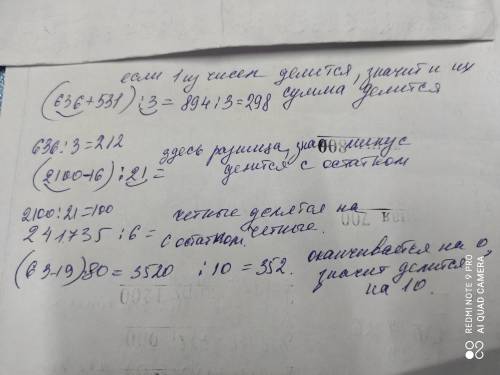 если 1 из чисел делится, значит и их
(636+531):3=894:3=298 сумма делится
636:3=212
здесь разница, знак минус
(2100-16):21= делится с остатком
2100:21=100
четные делятся на
241735:6= четные.
с остатком.
(63-19)80=3520 :10=352. оканчивается на 0,
значит делится
на 10.
REDMI NOTE 9 PRO
AI QUAD CAMERA